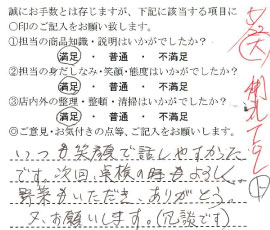 誠にお手数とは存じますが、下記に該当する項目に
〇印のご記入をお願い致します。
①担当の商品知識・説明はいかがでしたか？
満足 ・ 普通 ・ 不満足
②担当の身だしなみ・笑顔・態度はいかがでしたか？
満足 ・ 普通 ・ 不満足
③店内外の整理・整頓・清掃はいかがでしたか？
満足 ・ 普通 ・ 不満足
◎ご意見・お気付きの点等、ご記入をお願いします。
いつも笑顔で話しやすかった
です。次回、車検の時もよろしく。
野菜もいただき、ありがとう。
又、お願いします。(冗談です)